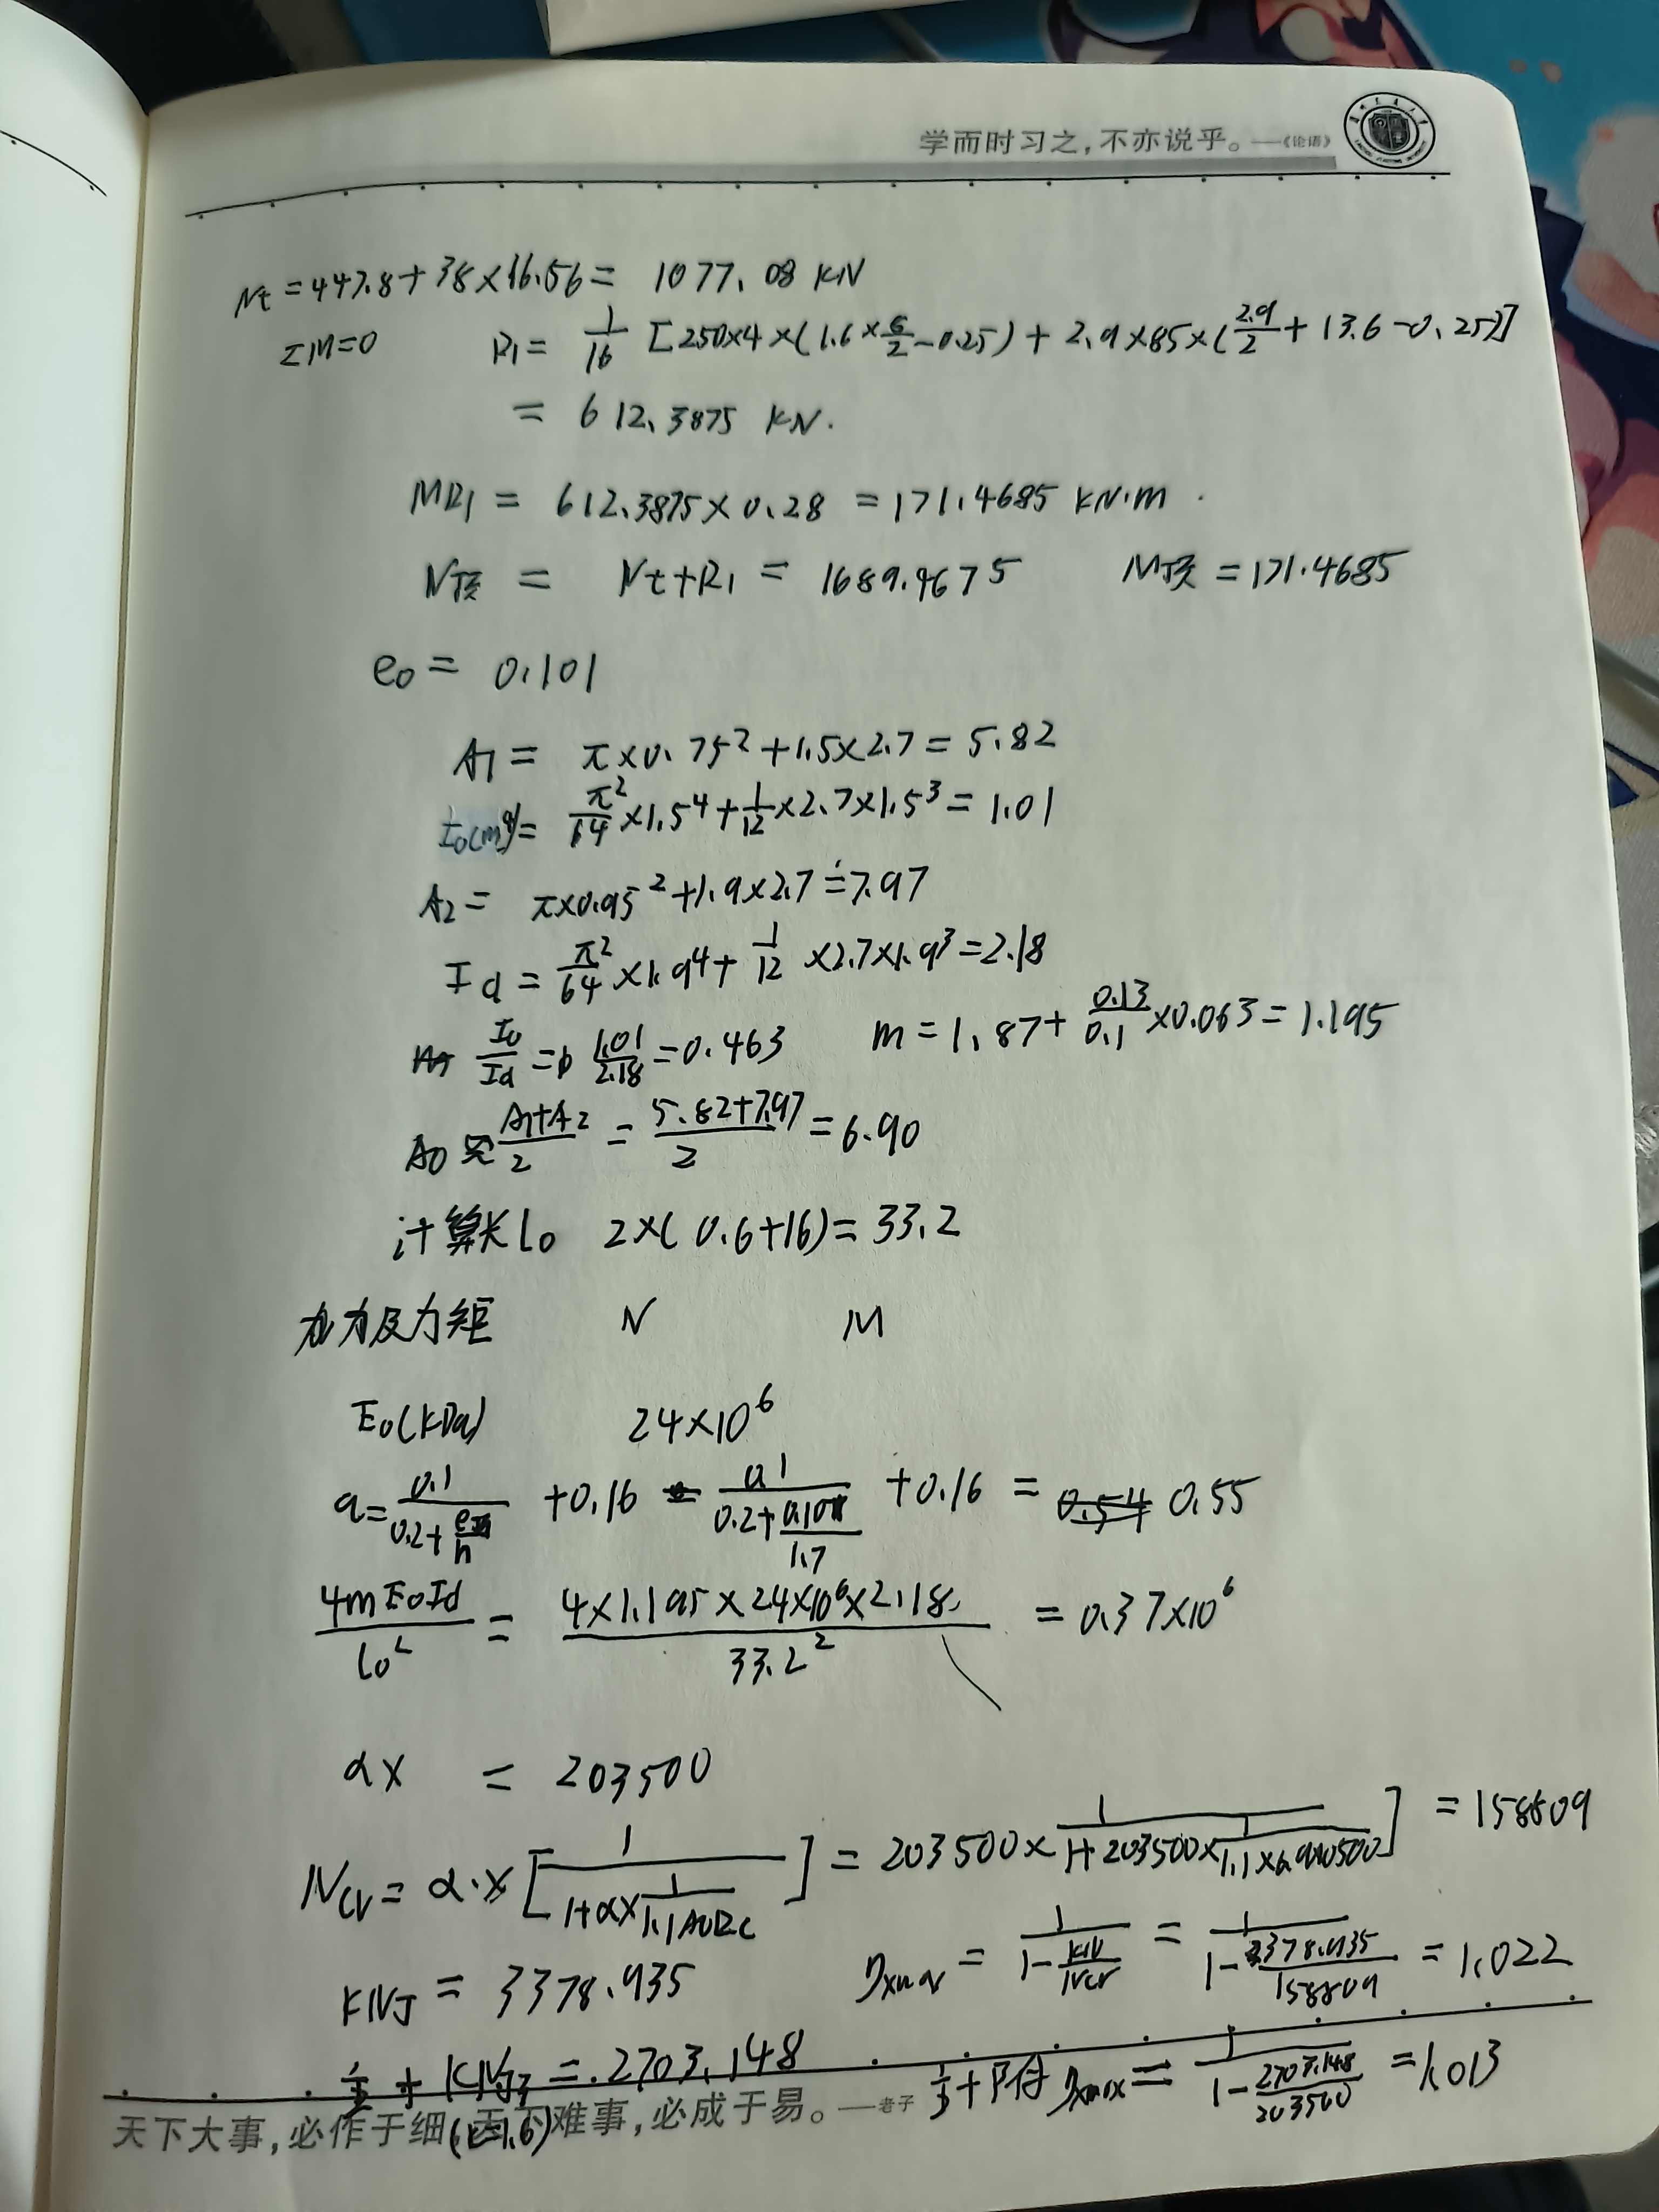 学而时习之,不亦说乎。——《论语》
Nt = 447.8 + 38×16.56 = 1077.08 KN
ΣM=0 R1 = 1/16 [250×4×(1.6×6/2-0.25) + 2.9×85×(2.9/2 + 13.6-0.25)]
= 612.3875 KN.
MR1 = 612.3875×0.28 = 171.4685 KN·m
N顶 = Nt+R1 = 1689.4675 M顶 = 171.4685
e0 = 0.101
A1 = π×0.75²+1.5×2.7 = 5.82
I0(m⁴) = π²/64 ×1.5⁴ + 1/12 ×2.7×1.5³ = 1.01
A2 = π×0.95²+1.9×2.7 = 7.97
Id = π²/64 ×1.9⁴ + 1/12 ×2.7×1.9³ = 2.18
I0/Id = 1.01/2.18 = 0.463 m = 1.87 + 0.13/0.1 ×0.063 = 1.195
A0 (A1+A2)/2 = (5.82+7.97)/2 = 6.90
计算长l0 2×(0.6+16) = 33.2
力及力矩 N M
E0(KPa) 24×10⁶
a = 0.1/(0.2+e/h) +0.16 = 0.1/(0.2+0.101/1.7) +0.16 = 0.54 0.55
4mE0Id/l0² = 4×1.195×24×10⁶×2.18/33.2² = 0.37×10⁶
αx = 203500
Ncr = α·x[1/(1+αx 1/(1.1A0Rc))] = 203500×1/(1+203500×1/(1.1×6.9×10500))] = 158809
KNJ = 3378.935 ηxmax = 1/(1-KN/Ncr) = 1/(1-3378.935/158809) = 1.022
主+ KNJ = 2703.148 主+附 ηxmax = 1/(1-2703.148/203500) = 1.013
(k=1.6)
天下大事,必作于细;天下难事,必成于易。——老子